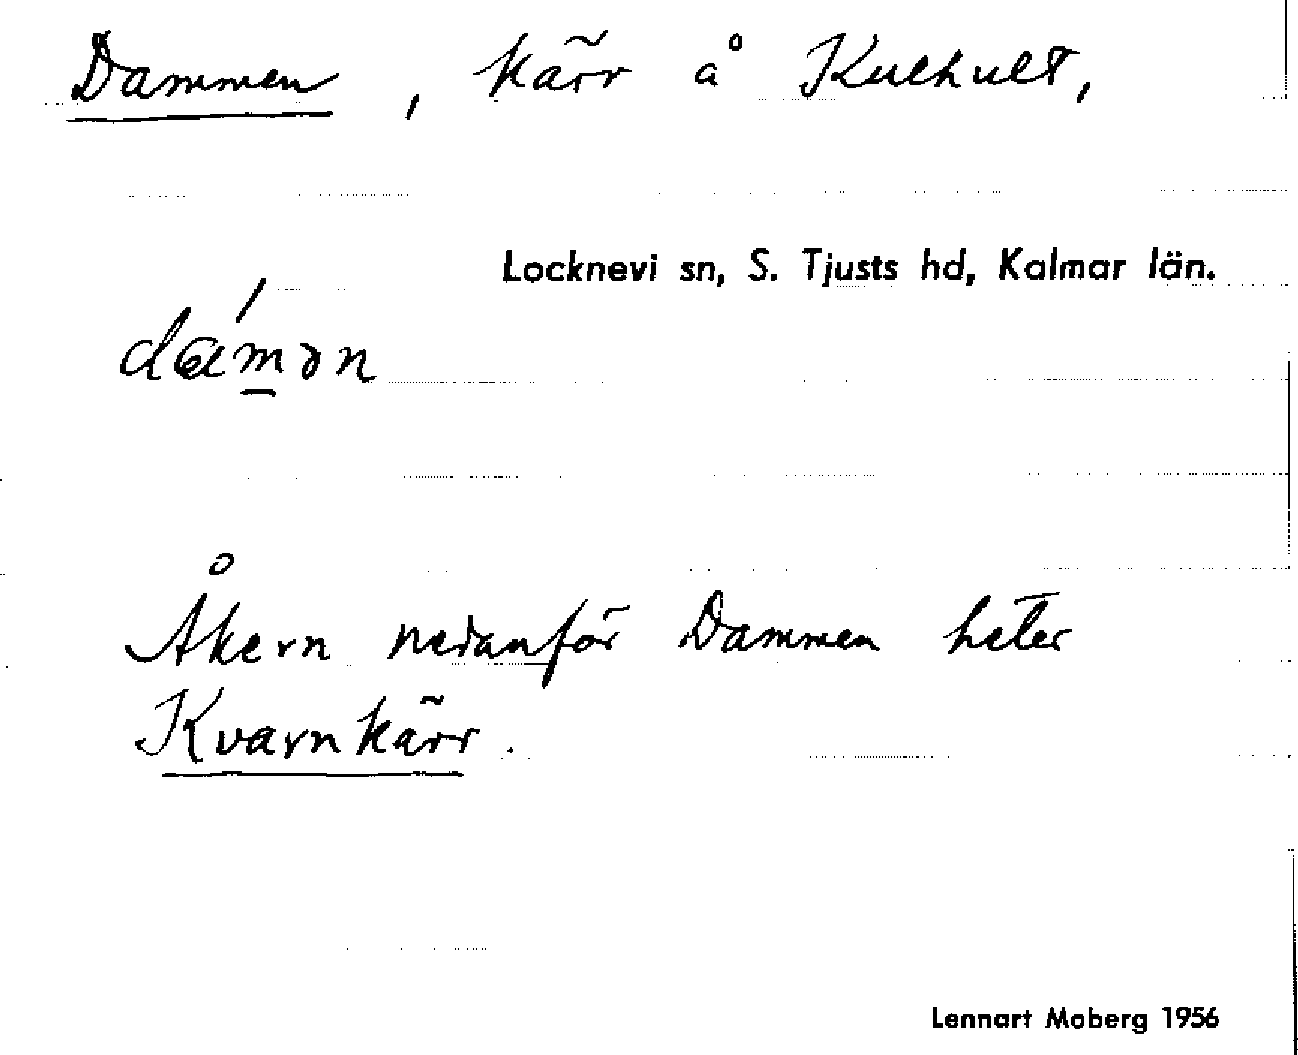 Dammen, kärr å Kulhult,
Locknevi sn, S. Tjusts hd, Kalmar län.
Åkern nedanför Dammen heter
Kvarnkärr.
Lennart Moberg 1956